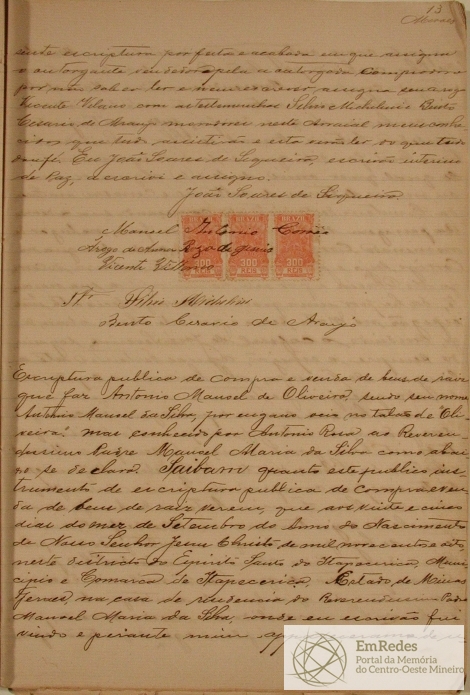 13
Moraes
sente escriptura por feita e acabada em que assigna
o outorgante vendedor e pela a outorgada compradora
por não saber ler e nem escrever assigna seu a rogo
Vicente com as testemunhas Silvio Michelini Bento
Cesario de Araujo moradores neste Arraial meus conhe
cidos que tudo assistirão e esta vendo ler do que tudo
dou fé. Eu João Soares de Siqueira, escrivão interino
de Paz, a escrevi e assigno.
João Soares de Siqueira.
Manoel Antonio Correa
Arogo de Rosa de Jesus
Vicente
BRAZIL BRAZIL BRAZIL
300 300 300
REIS REIS REIS
Tes Silvio Michelini
Bento Cesario de Araujo
Escriptura publica de compra e venda de bens de raiz
que faz Antonio Manoel de Oliveira, sendo seu nome
Antonio Manoel da Silva, por engano no talão de Oli
veira; mai conhecido por Antonio Rosa ao Reveren
dissimo Padre Manoel Maria da Silva como abai
xo se declara. Saibam quanto este publico ins
trumento de escriptura publica de compra e ven
da de bens de raiz verem, que aos vinte e cinco
dias do mez de Setembro do Anno do Nascimento
de Nosso Senhor Jesus Christo, de mil novecentos e oito,
neste districto do Espirito Santo do Itapecerica, Muni
cipio e Comarca de Itapecerica, Estado de Minas
Geraes, na casa de residencia do Reverendissimo Padre
Manoel Maria da Silva, onde eu escrivão fui
vindo e perante mim
EmRedes
Portal da Memória
do Centro-Oeste Mineiro